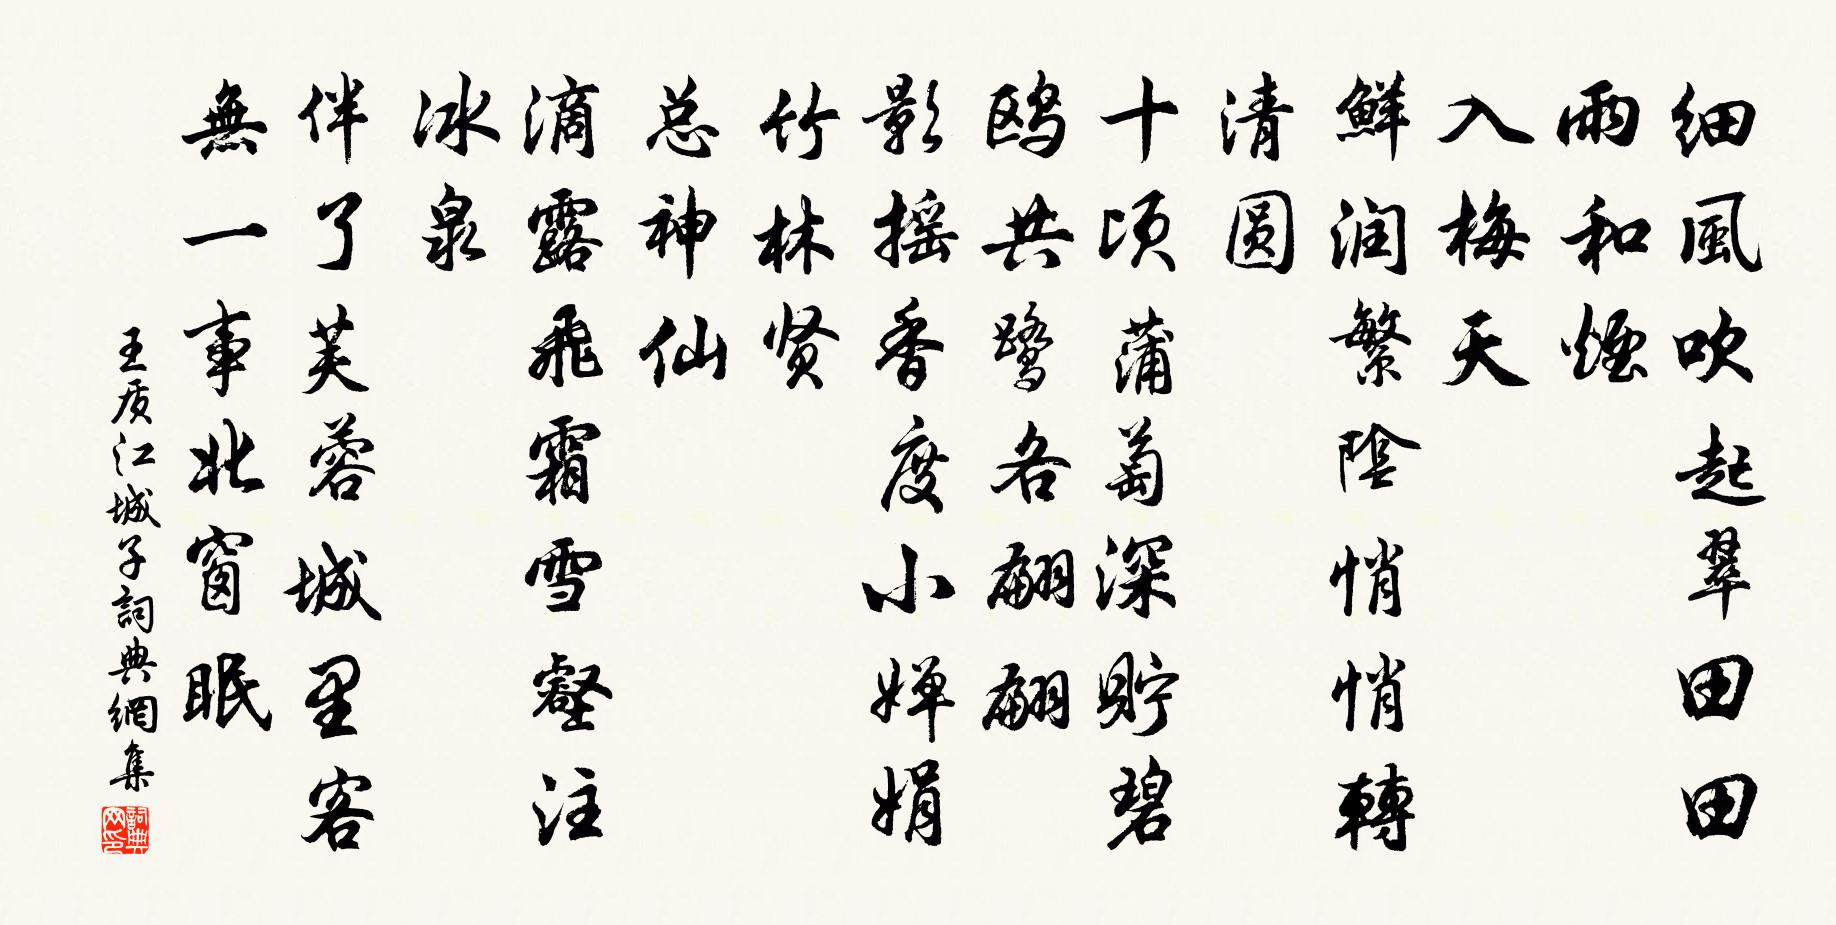 细風吹起翠田田
雨和煙
入梅天
鲜润繁陰悄悄轉
清圆
十顷蒲萄深貯碧
鸥共鹭各翩翩
影摇香度小婵娟
竹林贤
总神仙
滴露飛霜雪壑注
冰泉
伴了芙蓉城里客
無一事北窗眠
王质江城子詞典網集
詞典網印